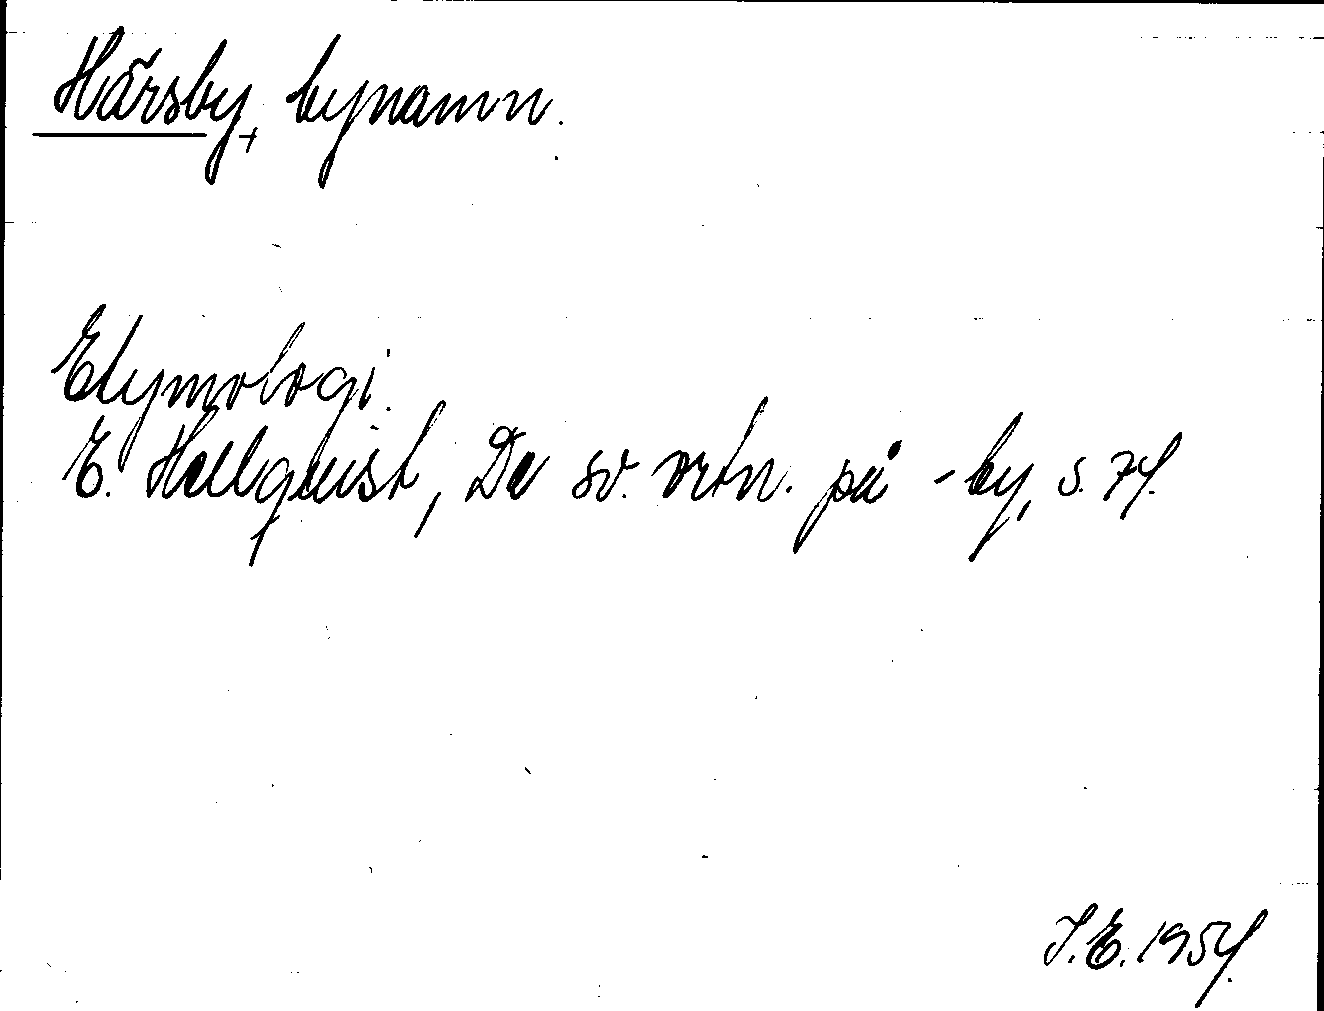 Härsby, bynamn.
Etymologi.
E. Hellquist, De sv. ortn. på -by, s. 74.
I.E. 1954.